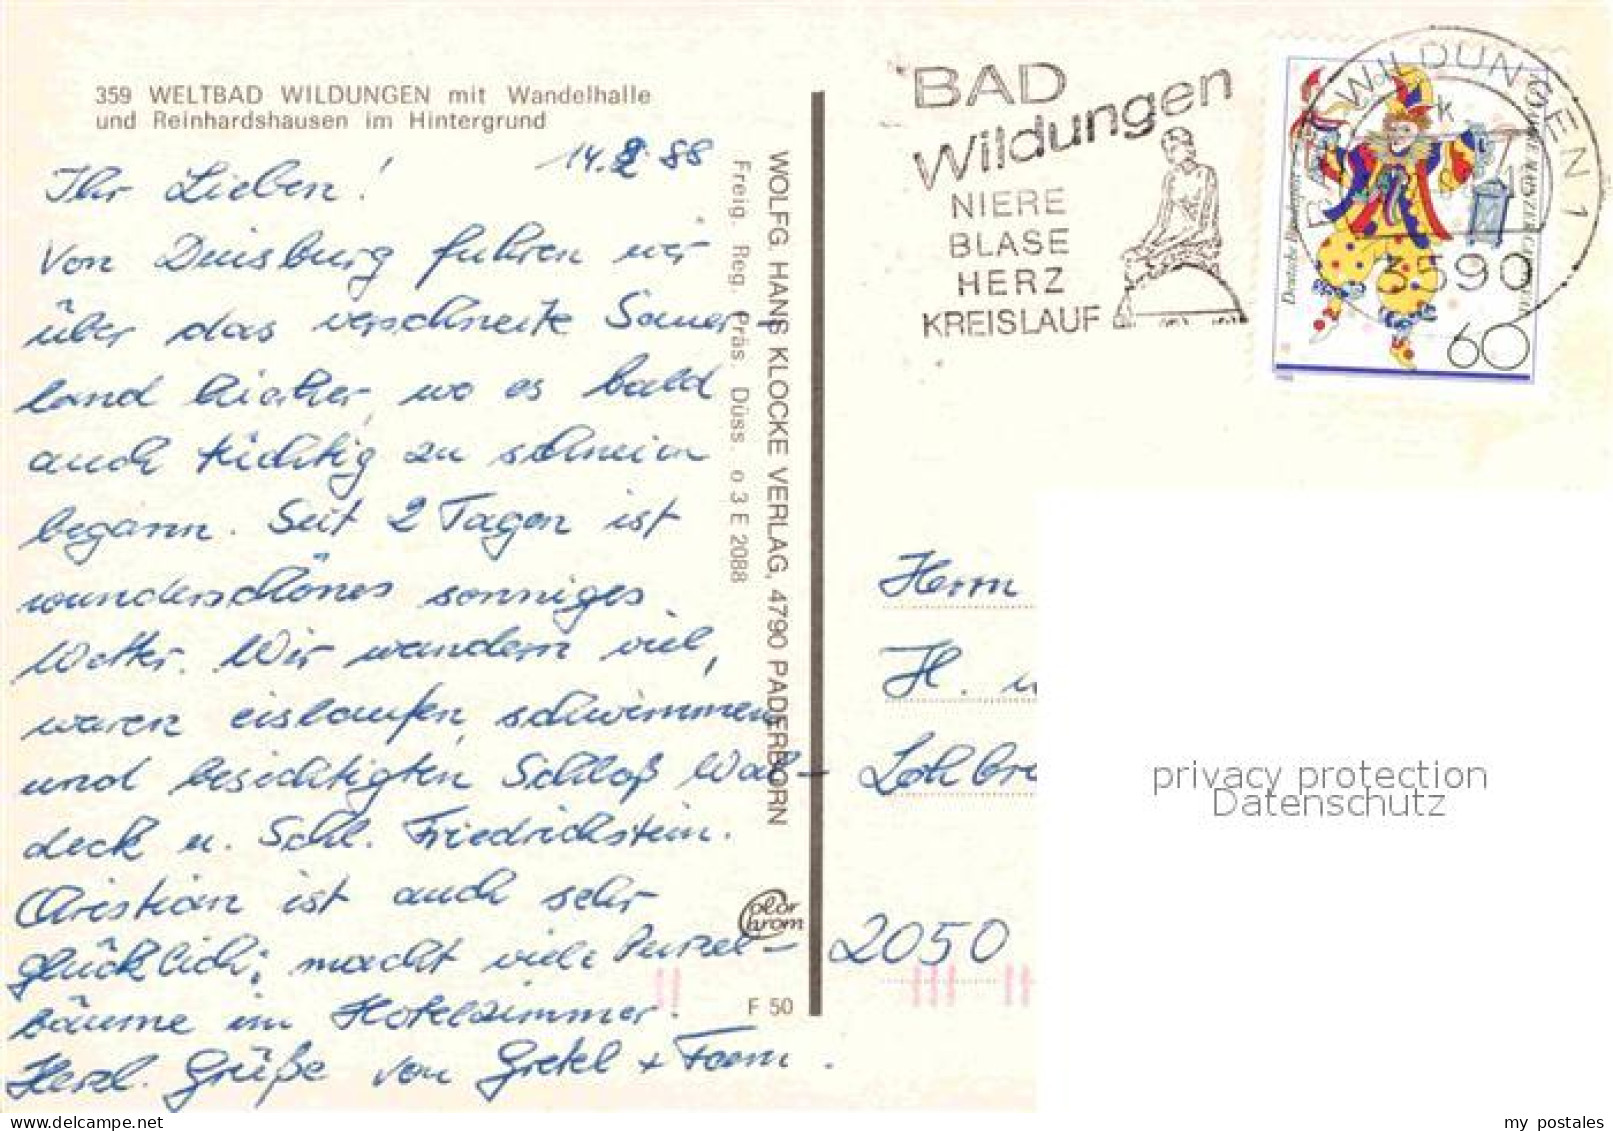 359 WELTBAD WILDUNGEN mit Wandelhalle
und Reinhardshausen im Hintergrund
14.2.88
Ihr Lieben!
Von Duisburg fuhren wir
über das verschneite Sauer-
land hierher, wo es bald
auch tüchtig zu schneien
begann. Seit 2 Tagen ist
wunderschönes sonniges
Wetter. Wir wandern viel,
waren eislaufen, schwimmen
und besichtigten Schloß Wal-
deck u. Schl. Friedrichstein.
Christian ist auch sehr
glücklich; macht viele Purzel-
bäume im Hotelzimmer.
Herzl. Grüße von Gretel + Fam.
WOLFG. HANS KLOCKE VERLAG, 4790 PADERBORN
Freig. Reg. Präs. Düss. o 3 E 2088
Color
Chrom
F 50
BAD
Wildungen
NIERE
BLASE
HERZ
KREISLAUF
BAD WILDUNGEN 1
3590
Deutsche Bundespost
60
Herrn
H. u
Lohbrü
2050
privacy protection
Datenschutz
my postales